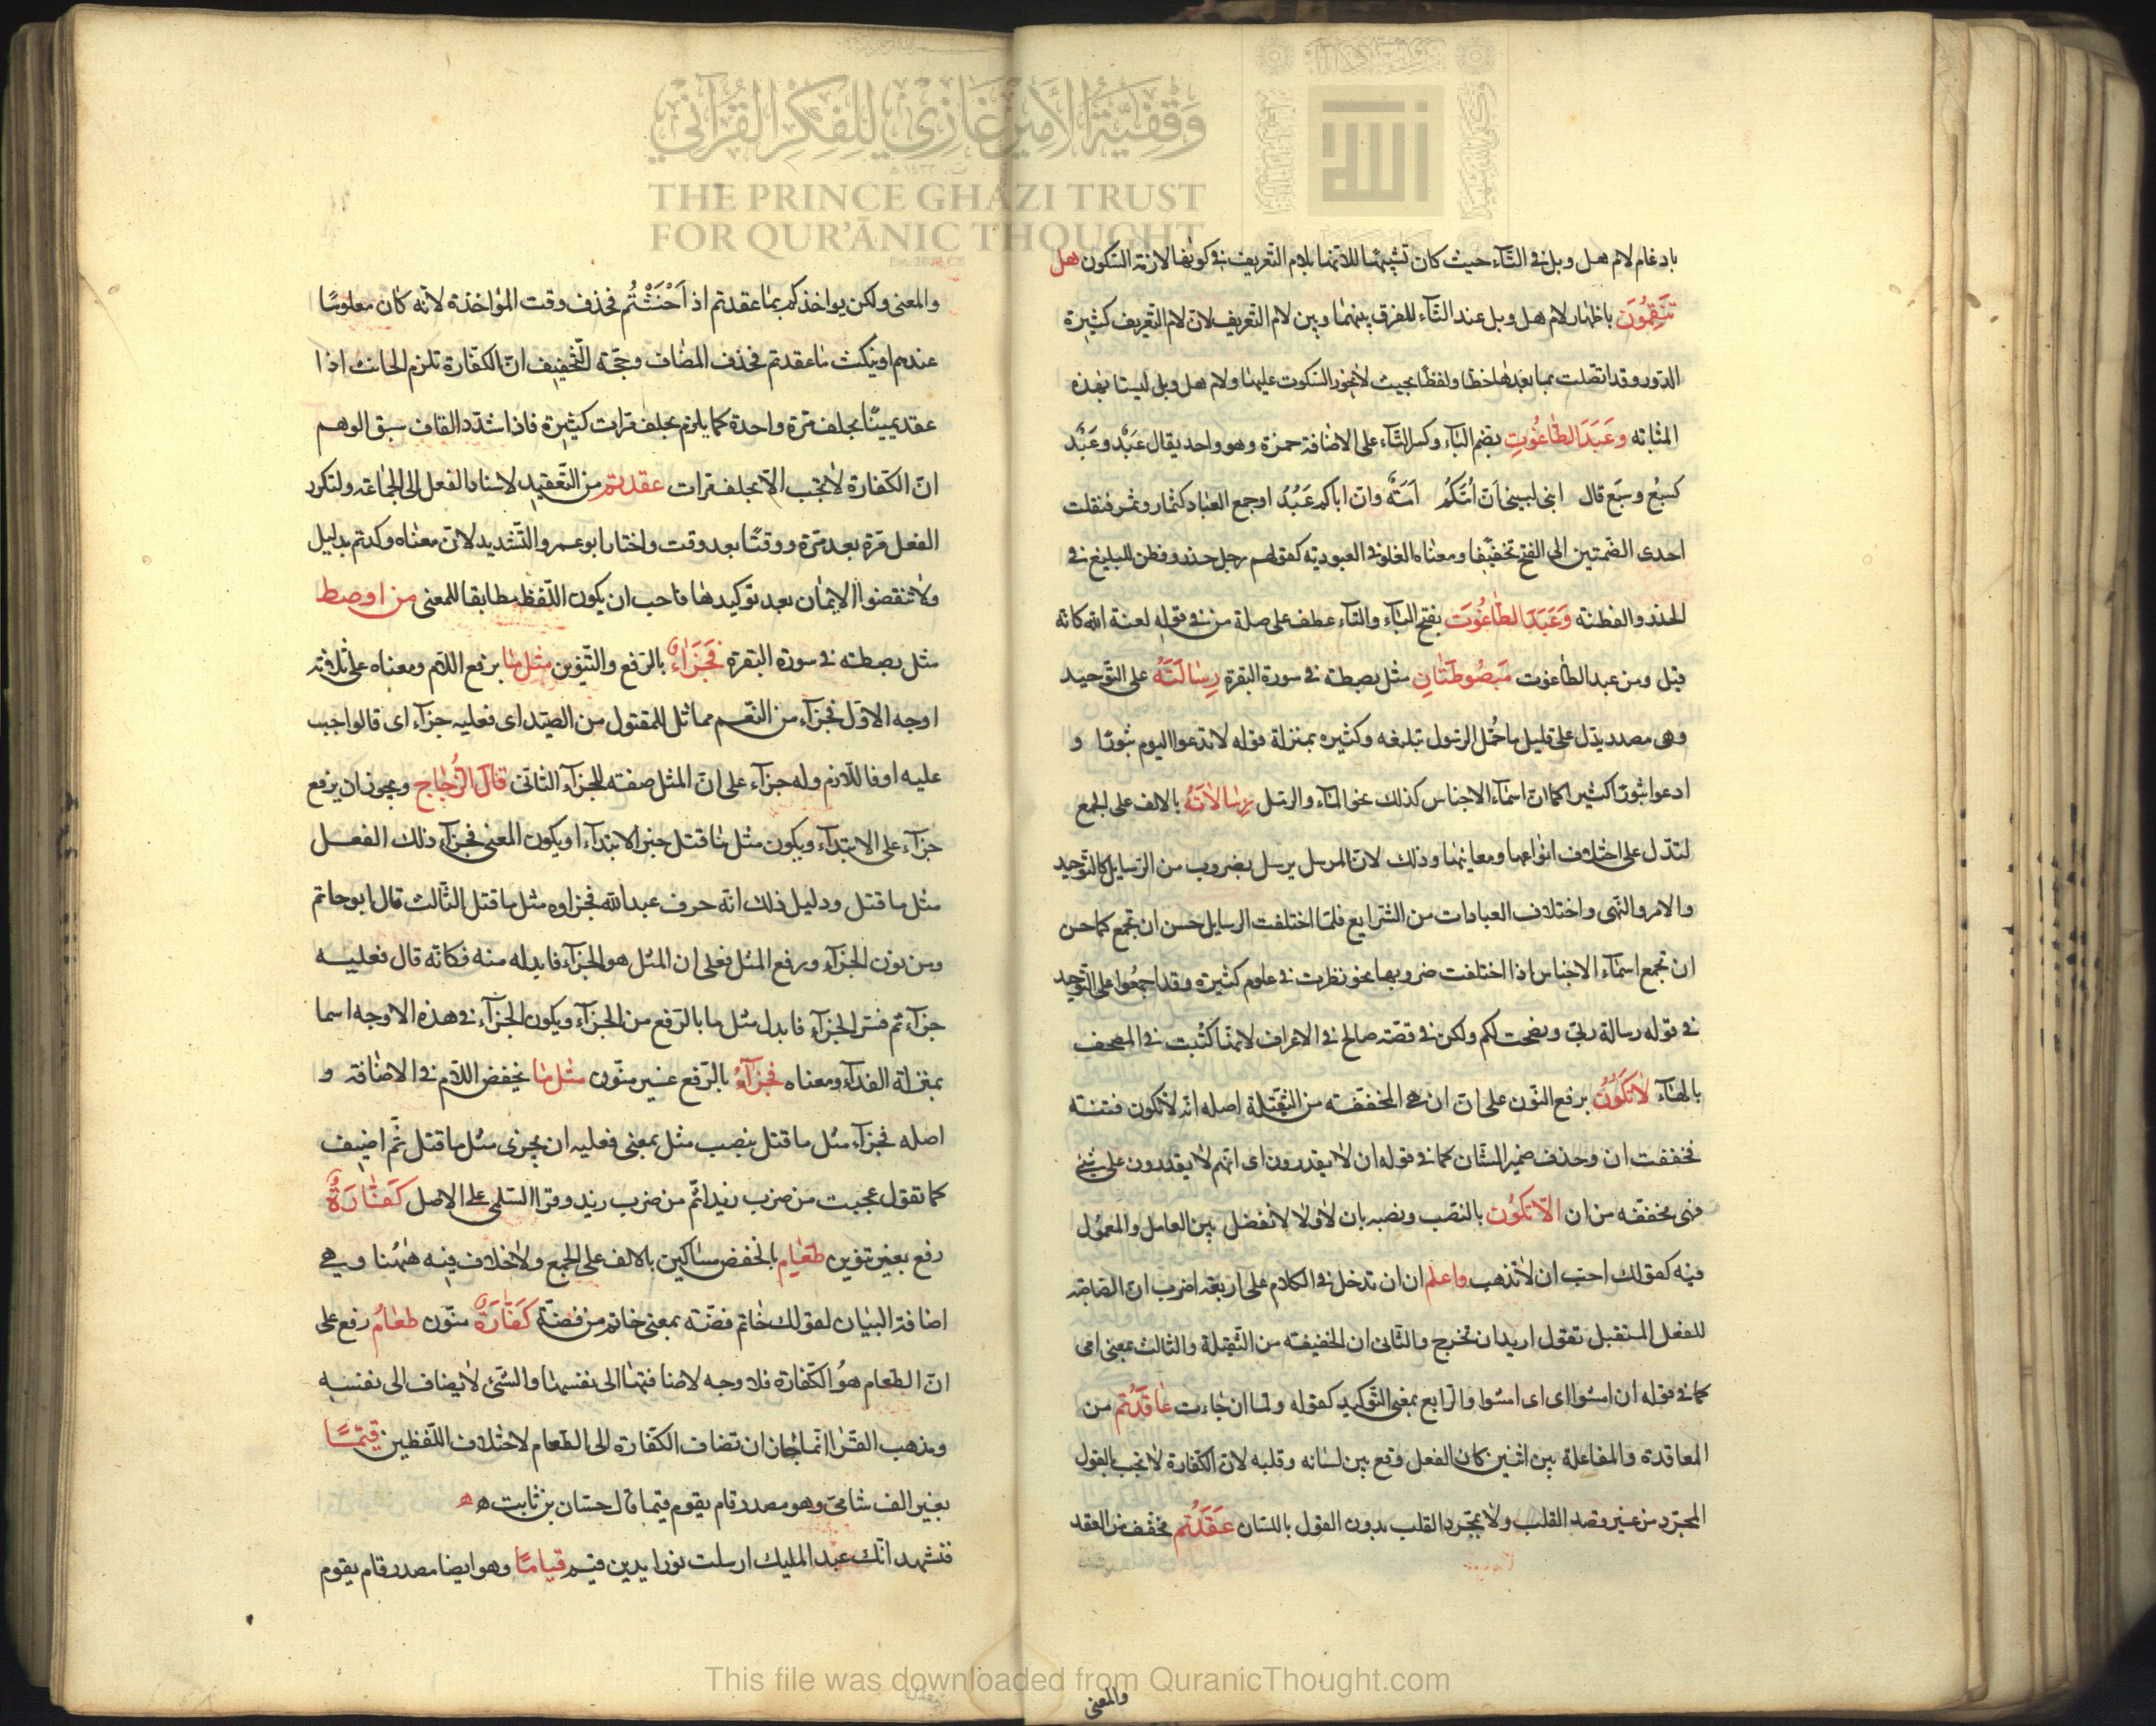 وقفية الأمير غازي للفكر القرآني
THE PRINCE GHAZI TRUST
FOR QUR'ĀNIC THOUGHT
بادغام لام هل وبل في التاء حيث كان تشبيهًا للامهما بلام التعريف في كونها لازمة السكون هل
تَنْقِمُونَ باظهار لام هل وبل عند التاء للفرق بينهما وبين لام التعريف لان لام التعريف كثيرة
الدّور وقد اتصلت بما بعدها خطا ولفظا بحيث لا يجوز السكوت عليها ولام هل وبل ليستا بهذه
المثابة وعَبَدَ الطّاغُوتِ بضم الباء وكسر التاء على الاضافة حمزة وهو واحد يقال عَبْد وعَبُد
كسبُع وسبع قال ابني لبيني ان اُمّكُمُ اَمَةٌ وان اباكم عَبُدُ اوجمع العباد كثمار وثمر فنقلت
احدى الضمتين الى الفتح تخفيفا ومعناه الغلو في العبودية كقولهم رجل حذر وفطن للبليغ في
الحذر والفطنة وَعَبَدَ الطّاغُوتَ بفتح الباء والتاء عطف على صلة من في قوله لعنة الله كانه
قيل ومن عبد الطاغوت مَبصُوطَتٰانِ مثل بصطة في سورة البقرة رِسٰالَتَهُ على التوحيد
وهى مصدر يدل على قليل ما حُمّل الرسول تبليغه وكثيره بمنزلة قوله لا تدعوا اليوم ثبورًا و
ادعوا ثبورًا كثيرا كما ان اسماء الاجناس كذلك نحو الماء والرمل رِسٰالاتَهُ بالالف على الجمع
لتدل على اختلاف انواعها ومعانيها وذلك لان المرسل يرسل بضروب من الرسايل كالتوحيد
والامر والنهى واختلاف العبادات من الشرايع فلما اختلفت الرسايل حسن ان تجمع كما حسن
ان تجمع اسماء الاجناس اذا اختلفت ضروبها نحو نظرت في علوم كثيرة وقد اجمعوا على التوحيد
في قوله رسالة ربي ونصحت لكم ولكن في قصة صالح في الاعراف لانها كُتبت في المصحف
بالهاء لٰا تَكُونُ برفع النون على ان ان هى المخففة من الثقيلة اصله انه لا تكون فتنة
فخففت ان وحذف ضمير الشان كما في قوله ان لا يقدرون اى انهم لا يقدرون على شئ
فهى مخففة من ان الّا تَكُونَ بالنصب ونصبه بان لا ولا لا تفصل بين العامل والمعمول
فيه كقولك احب ان لا تذهب واعلم ان ان تدخل في الكلام على اربعة اضرب ان الناصبة
للفعل المستقبل تقول اريد ان تخرج والثاني ان الخفيفة من الثقيلة والثالث بمعنى اى
كما في قوله ان امشوا اى اى امشوا والرابع بمعنى التوكيد كقوله ولما ان جاءت عٰاقَدْتُم من
المعاقدة والمفاعلة بين اثنين كان الفعل وقع بين لسانه وقلبه لان الكفارة لا تجب بالقول
المجرد من غير قصد القلب ولا بمجرد القلب بدون القول باللسان عَقَدْتُم مخفف من العقد
والمعنى
والمعنى ولكن يواخذكم بما عقدتم اذ اَحْنَثْتُم فحذف وقت المؤاخذة لانه كان معلومًا
عندهم او بنكث ما عقدتم فحذف المضاف وحجّة التخفيف ان الكفارة تلزم الحانث اذا
عقد يمينًا بحلف مرة واحدة كما يلزم بحلف مرات كثيرة فاذا شدد القاف سبق الوهم
ان الكفارة لا تجب الا بحلف مرات عقدتم من التعقيد لاسناد الفعل الى الجماعة ولتكرر
الفعل مرة بعد مرة ووقتًا بعد وقت واختار ابو عمرو التشديد لان معناه وكدتم بدليل
ولا تنقضوا الايمان بعد توكيدها فاحب ان يكون اللفظ مطابقا للمعنى من اوصط
مثل بصطة في سورة البقرة فَجَزٰاءٌ بالرفع والتنوين مثل مٰا برفع اللام ومعناه على ثلاثة
اوجه الاول فجزاء من النعم مماثل للمقتول من الصيد اى فعليه جزاء اى فالواجب
عليه او فاللازم وله جزاء على ان المثل صفة للجزاء الثاني قال الزُّجاج ويجوز ان يرفع
جزاء على الابتداء ويكون مثل ما قتل خبر الابتداء اويكون المعنى فجزاء ذلك الفعل
مثل ما قتل ودليل ذلك انه حرف عبد الله فجزاوه مثل ما قتل الثالث قال ابو حاتم
ومن نون الجزاء ورفع المثل فعلى ان المثل هو الجزاء فابدله منه فكانه قال فعليه
جزاء ثم فسر الجزاء فابدل مثل ما بالرفع من الجزاء ويكون الجزاء في هذه الاوجه اسما
بمنزلة الفداء ومعناه فجزآءُ بالرفع غير منون مثل ما بخفض اللام في الاضافة و
اصله فجزاء مثل ما قتل بنصب مثل بمعنى فعليه ان يجزى مثل ما قتل ثم اضيف
كما تقول عجبت من ضرب زيدا ثم من ضرب زيد وقرا السلمى على الاصل كَفّٰارَةُ
رفع بغير تنوين طعٰام بالخفض مساكين بالالف على الجمع ولا خلاف فيه هٰهُنا وهى
اضافة البيان لقولك خاتم فضة بمعنى خاتم من فضة كَفّٰارَةٌ منون طعٰامُ رفع على
ان الطعام هو الكفارة فلا وجه لاضافتها الى نفسها والشئ لا يضاف الى نفسه
ومذهب الفرا انما جاز ان تضاف الكفارة الى الطعام لاختلاف اللفظين قِيَمًا
بغير الف شامى وهو مصدر قام يقوم قيما قال حسّان بن ثابت ه ه
فنشهد انك عبد المليك ارسلت نورا بدين قيم قيامًا وهو ايضا مصدر قام يقوم
This file was downloaded from QuranicThought.com